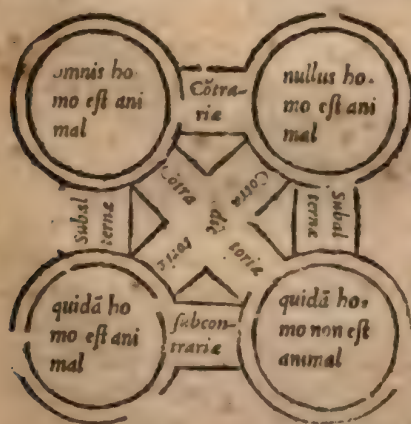 omnis ho-
mo eſt ani
mal
Cõtra-
riæ
nullus ho-
mo eſt ani
mal
Subal
ternæ
Cõtra
dic
toriæ
Cõtra
toriæ
Subal
ternæ
quidã ho
mo eſt ani
mal
ſubcon-
trariæ
quidã ho-
mo non eſt
animal